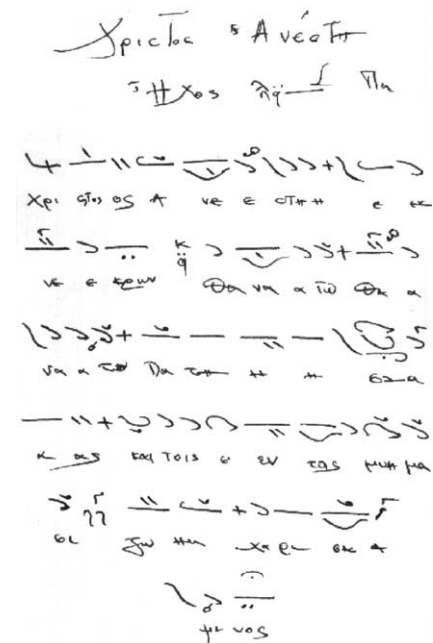 Χριστος Ἀνέστη
Ἦχος πλ Πα
Χρι στος ος Α νε ε στη η ε εκ
νε ε κρων Θα να α τω Θα α
να α τον Πα τη η η σα α
α ας και τοις ε εν τοις μνη μα
σι ζω ην χα ρι σα α
με νος